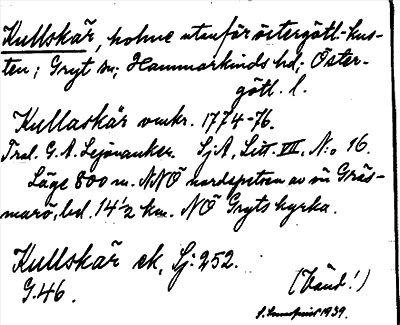 Kullskär, holme utanför östergötl-kus-
ten; Gryt sn; Hammarkinds hd; Öster-
götl. l.
Kullaskär omkr. 1774-76.
Trol. G. A. Lejonanker. SjA, Litt. VII, N:o 16.
Läge 800 m. NNÖ nordspetsen av ön Gräs-
marö, bel. 14 1/2 km. NÖ Gryts kyrka.
Kullskär ek, Sj: 252.
G.46.
(Vänd!)
1939.